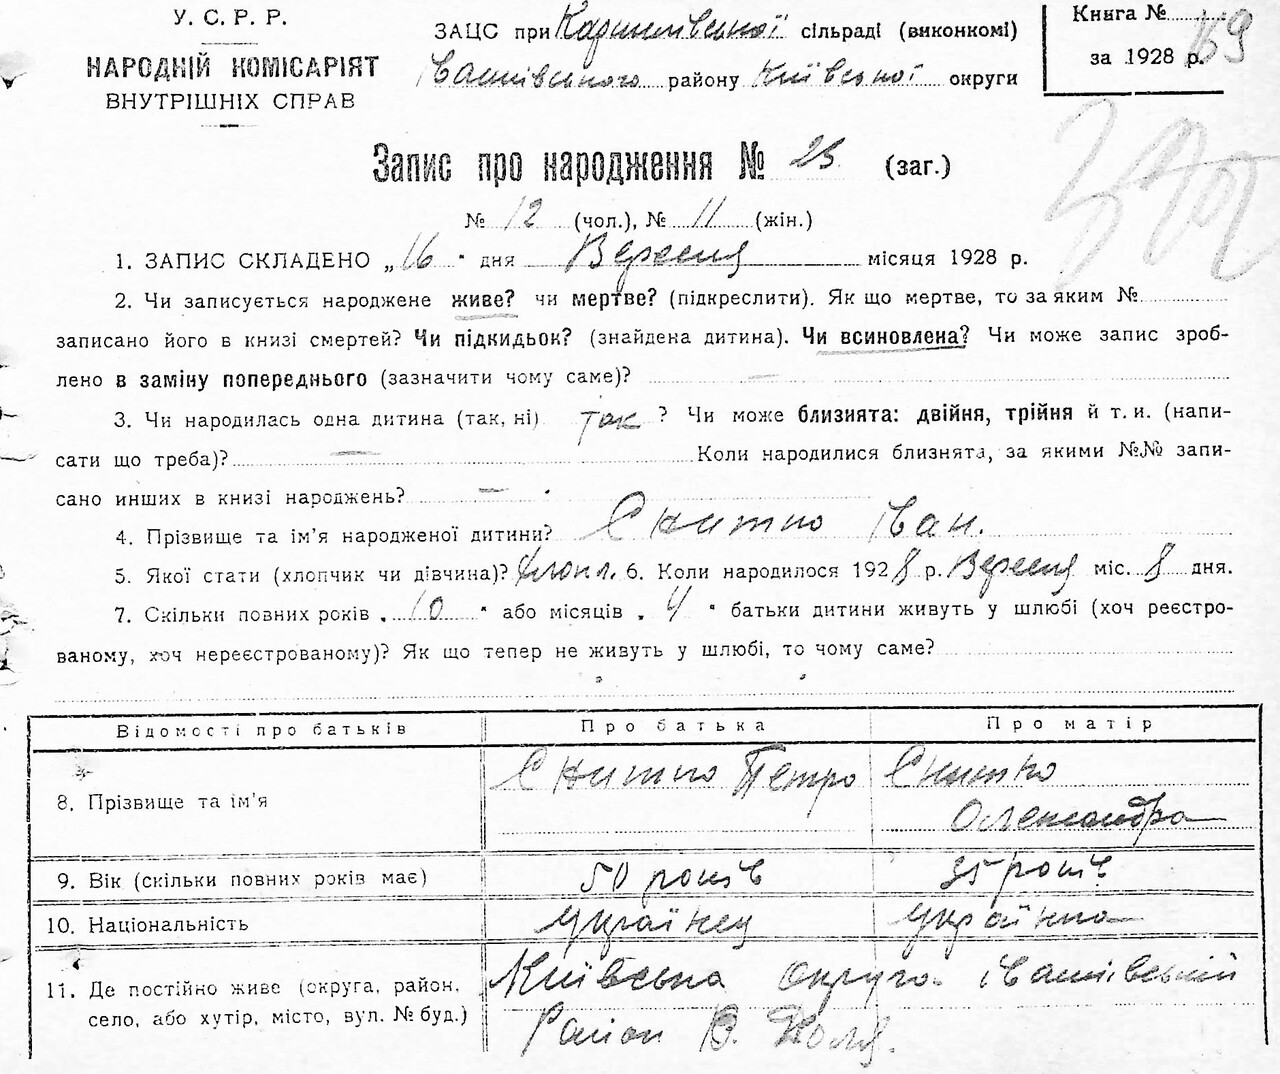 У. С. Р. Р.
НАРОДНІЙ КОМІСАРІЯТ
ВНУТРІШНІХ СПРАВ
ЗАЦС при сільраді (виконкомі)
району Київської округи
Книга №
за 1928 р.
Запис про народження № 23 (заг.)
№ 12 (чол.), № 11 (жін.)
1. ЗАПИС СКЛАДЕНО „16" дня Вересня місяця 1928 р.
2. Чи записується народжене живе? чи мертве? (підкреслити). Як що мертве, то за яким №
записано його в книзі смертей? Чи підкидьок? (знайдена дитина). Чи всиновлена? Чи може запис зроб-
лено в заміну попереднього (зазначити чому саме)? —
3. Чи народилась одна дитина (так, ні) так ? Чи може близнята: двійня, трійня й т. и. (напи-
сати що треба)? — Коли народилися близнята, за якими №№ запи-
сано инших в книзі народжень? —
4. Прізвище та ім'я народженої дитини? Снитко Іван.
5. Якої стати (хлопчик чи дівчина)? Хлопч. 6. Коли народилося 1928 р. Вересня міс. 8 дня.
7. Скільки повних років „10" або місяців „4" батьки дитини живуть у шлюбі (хоч реєстро-
ваному, хоч нереєстрованому)? Як що тепер не живуть у шлюбі, то чому саме?
Відомості про батьків Про батька Про матір
8. Прізвище та ім'я Снитко Петро Снитко
Олександра
9. Вік (скільки повних років має) 50 років 35 років
10. Національність українец українка
11. Де постійно живе (округа, район, Київська округа
село, або хутір, місто, вул. № буд.) Район В.